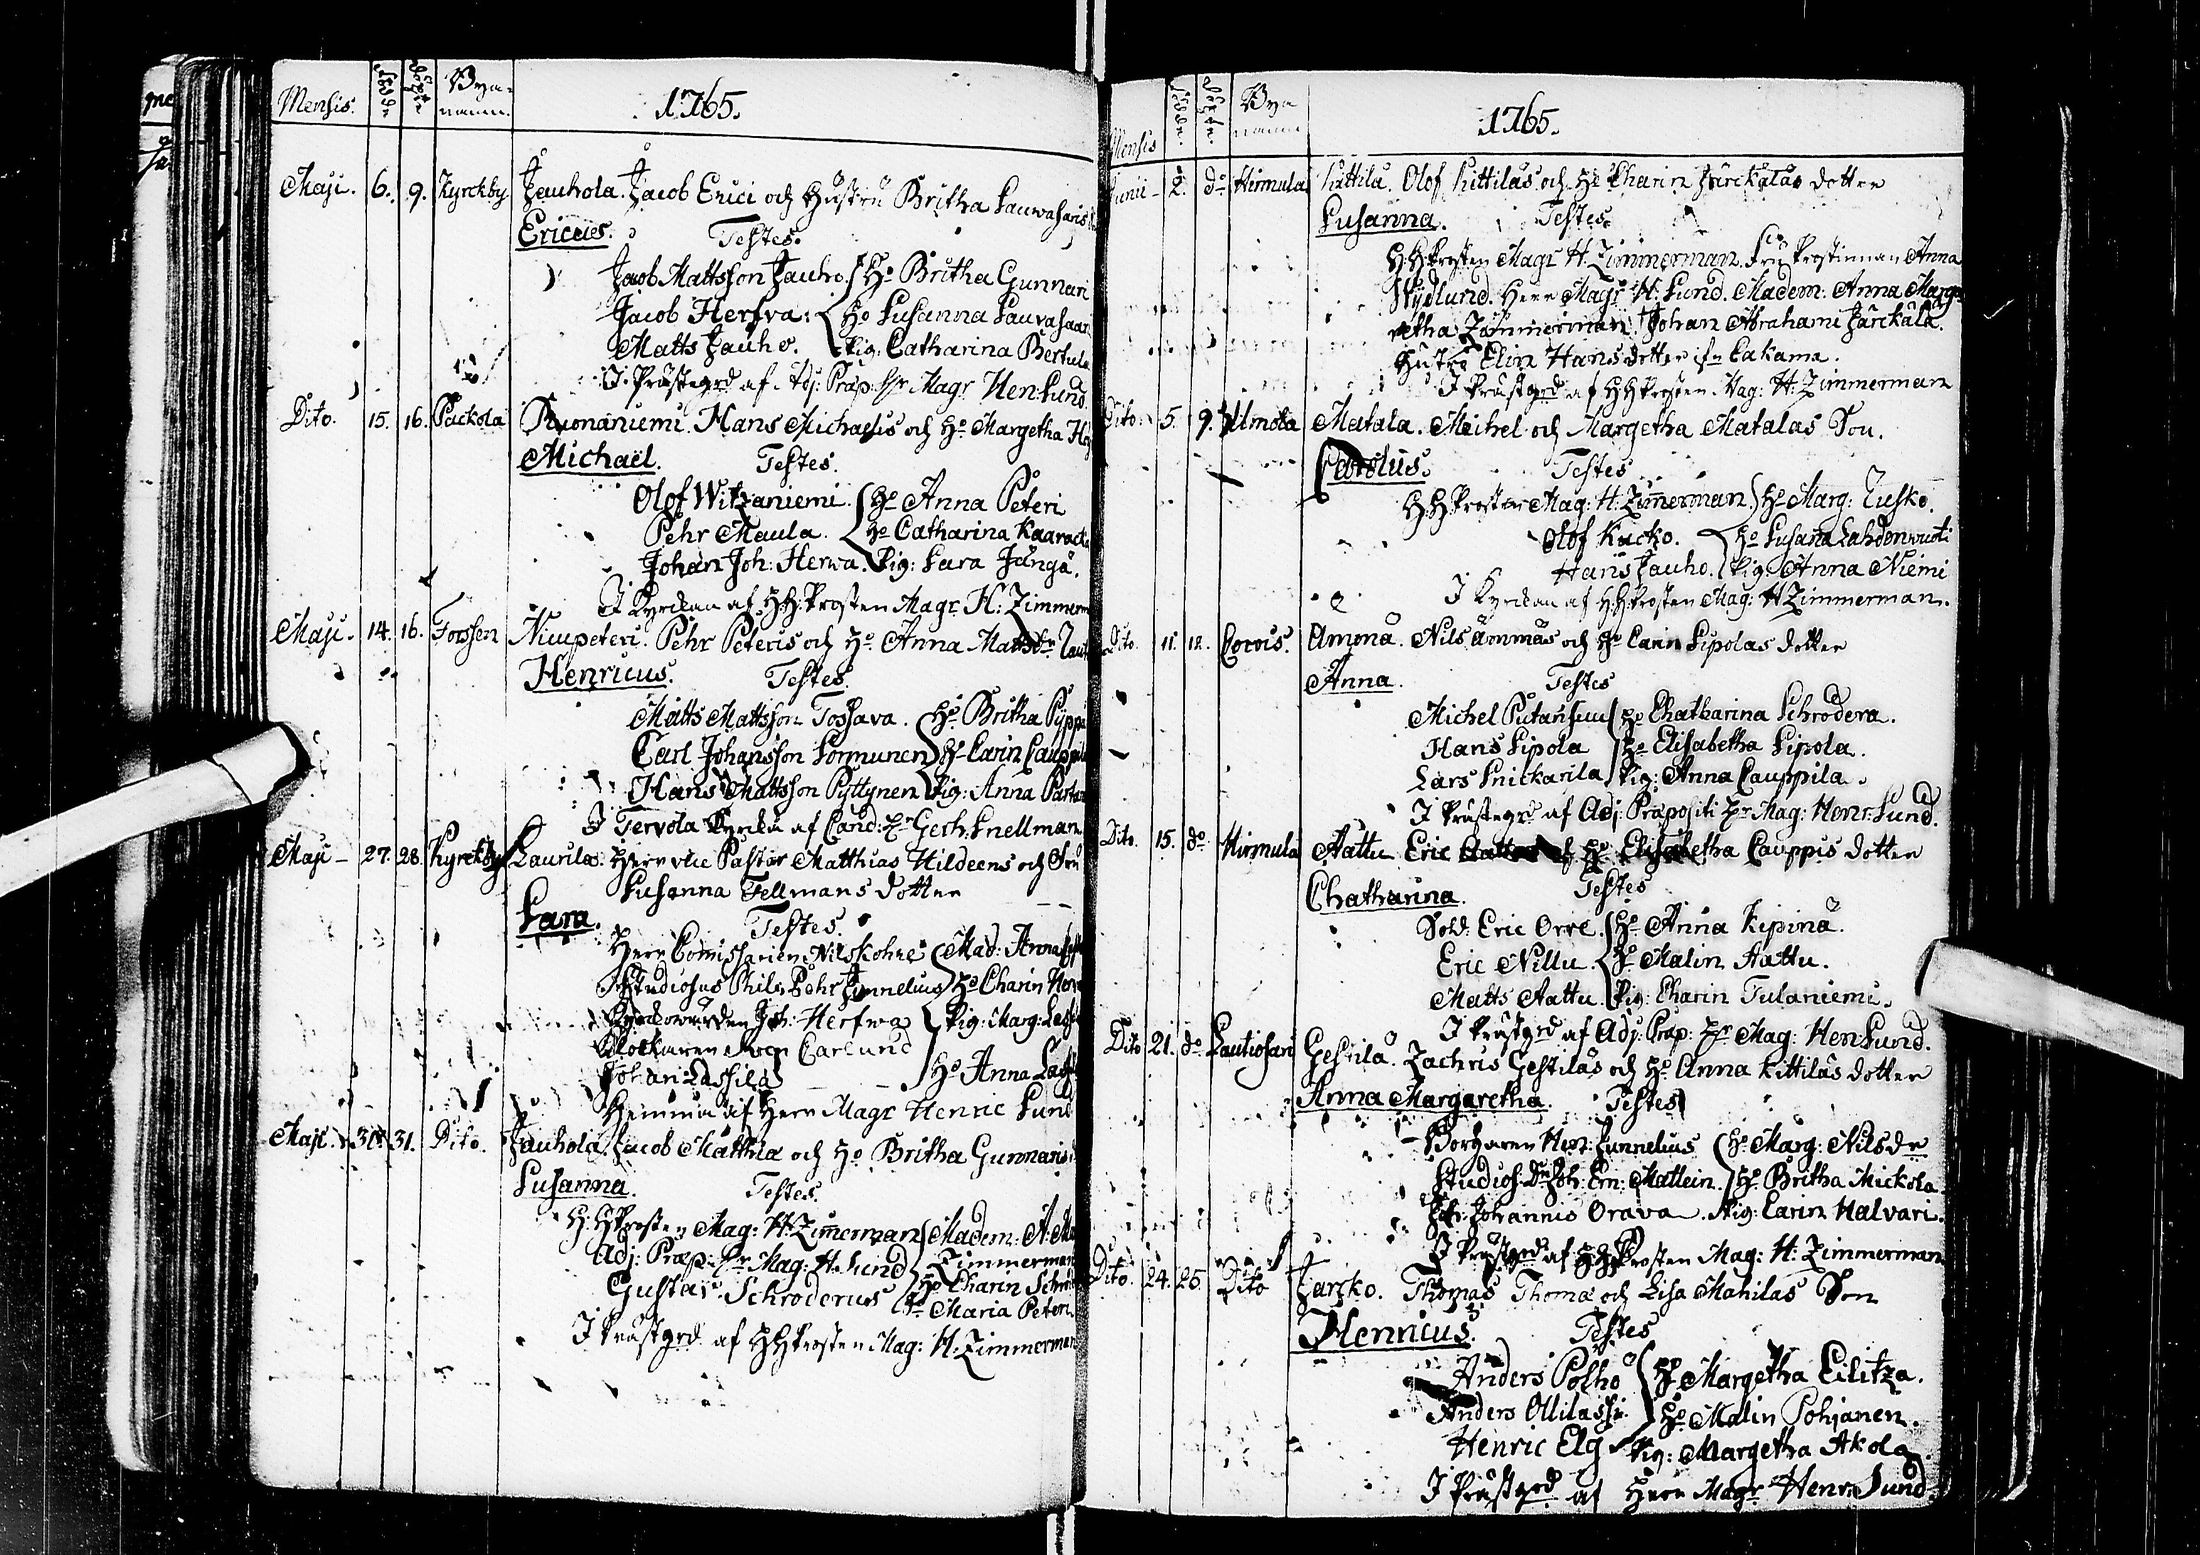 Mensis. Födde Döpte Bya-namn. 1765.
Maji. 6. 9. Kyrckby Jauhola. Jacob Erici och Hustru Britha Lauwasaris
Ericus. Testes.
Jacob Mattsson Jauho. Ho Britha Gunnari
Jacob Herfva. Ho Susanna Lauvasaar
Matts Jauho. Pig: Catharina Bertula
I Prästegrd af Adj: Præp: Hr Magr Hen: Lund.
Dito. 15. 16. Packola Ruonaniemi. Hans Michaelis och Ho Margetha
Michaël. Testes.
Olof Witzaniemi. Ho Anna Peteri
Pehr Maula. Ho Catharina Kaaracka
Johan Joh: Herwa. Pig: Sara Junga.
I Kyrckan af H.H. Prosten Magr H: Zimmerm
Maji. 14. 16. Torssen Nicupeteri. Pehr Peteris och Ho Anna Mattsdr
Henricus. Testes.
Matts Mattsson Tossava. Ho Britha Pyppi
Carl Johansson Sormunen Ho Carin Lauppi
Hans Mattsson Pyttynen Pig: Anna Parta
I Tervola Kyrcka af Cand: Hr Gerh. Snellman
Maji 27. 28. Kyrckby Laurila. Herr vice Pastor Matthias Hildeens och Fru
Susanna Fellmans dotter
Sara. Testes.
Herr Comissarien Nils Kohne Mad: Anna
Studiosus Philos Pehr Junnelius Ho Charin
Kyrckowärden Joh: Herfwa Pig: Marg: Lassi
Klockaren Carlund
Johan Lassila Ho Anna Lassil
Hemma af Herr Magr Henric Lund
Maji. 30. 31. Dito. Jauhola. Jacob Matthiæ och Ho Britha Gunnaris
Susanna. Testes.
H. H. Prosten Mag: H: Zimmerman Madem: A: Ma
Adj: Præp: Hr Mag: H. Lund Zimmerman
Gustav Schroderus Ho Charin Schro
Ho Maria Peteri
I Prästgrd af H H Prosten Mag: H. Zimmerman
Mensis Födde Döpte Bya namn 1765.
Junii 2. do Hirmula Kittilä. Olof Kittiläs och Ho Charin Järckäläs dotter
Susanna. Testes.
H H Prosten Magr H. Zimmerman Fru Prostinnan Anna
Hydlund. Herr Magr H: Lund. Madem: Anna Marga
retha Zimmerman Johan Abrahami Järckälä.
Hustru Elin Hansdotter ifr Eakama.
I Prästgrd af H H Prosten Mag: H. Zimmerman
Dito 5. 9. Ylmola Matala. Michel och Margetha Matalas Son.
Carolus. Testes
H.H. Prosten Mag: H. Zimmerman Ho Marg: Zusko.
Olof Kucko. Ho Susanna Lahdenwuoti
Hans Jauho. Pig: Anna Niemi
I Kyrckan af H:H: Prosten Mag: H Zimmerman.
Dito. 11. 12. Corvis. Ämmä. Nils Ämmäs och Ho Carin Sipolas dotter
Anna. Testes
Michel Putansuu Ho Chatharina Schrodera.
Hans Sipola Ho Elisabetha Sipola.
Lars Snickarila Pig: Anna Cauppila.
I Prästegrd af Adj: Præpositi Hr Mag: Henr: Lund.
Dito. 15. do Hirmula Aattu Eric och Ho Elisabetha Cauppis dotter
Chatharina. Testes
Sold: Eric Orre. Ho Anna Kepinä.
Eric Nillu. Ho Malin Aattu.
Matts Aattu. Pig: Charin Tulaniemi.
I Prästgrd af Adj: Præp: Hr Mag: Hen Lund.
Dito 21. do Lautiosari Gestilä. Zachris Gestiläs och Ho Anna Kittiläs dotter
Anna Margaretha. Testes
Borgaren Henr: Junnelius Ho Marg: Nilsdr
Studios: Dn Joh: Ern: Mattlein. Ho Britha Mickola
Joh: Johannis Orava. Pig: Carin Halvari.
I Prästgrd af H H Prosten Mag: H: Zimmerman
Dito. 24. 25. Dito Jarcko. Thomas Thomæ och Lisa Mahilas Son
Henricus. Testes
Anders Polho Ho Margetha Eilitza.
Anders Ollilassi Ho Malin Pohjanen.
Henric Elg Pig: Margetha Akola
I Prästgrd af Herr Magr Henr: Lund